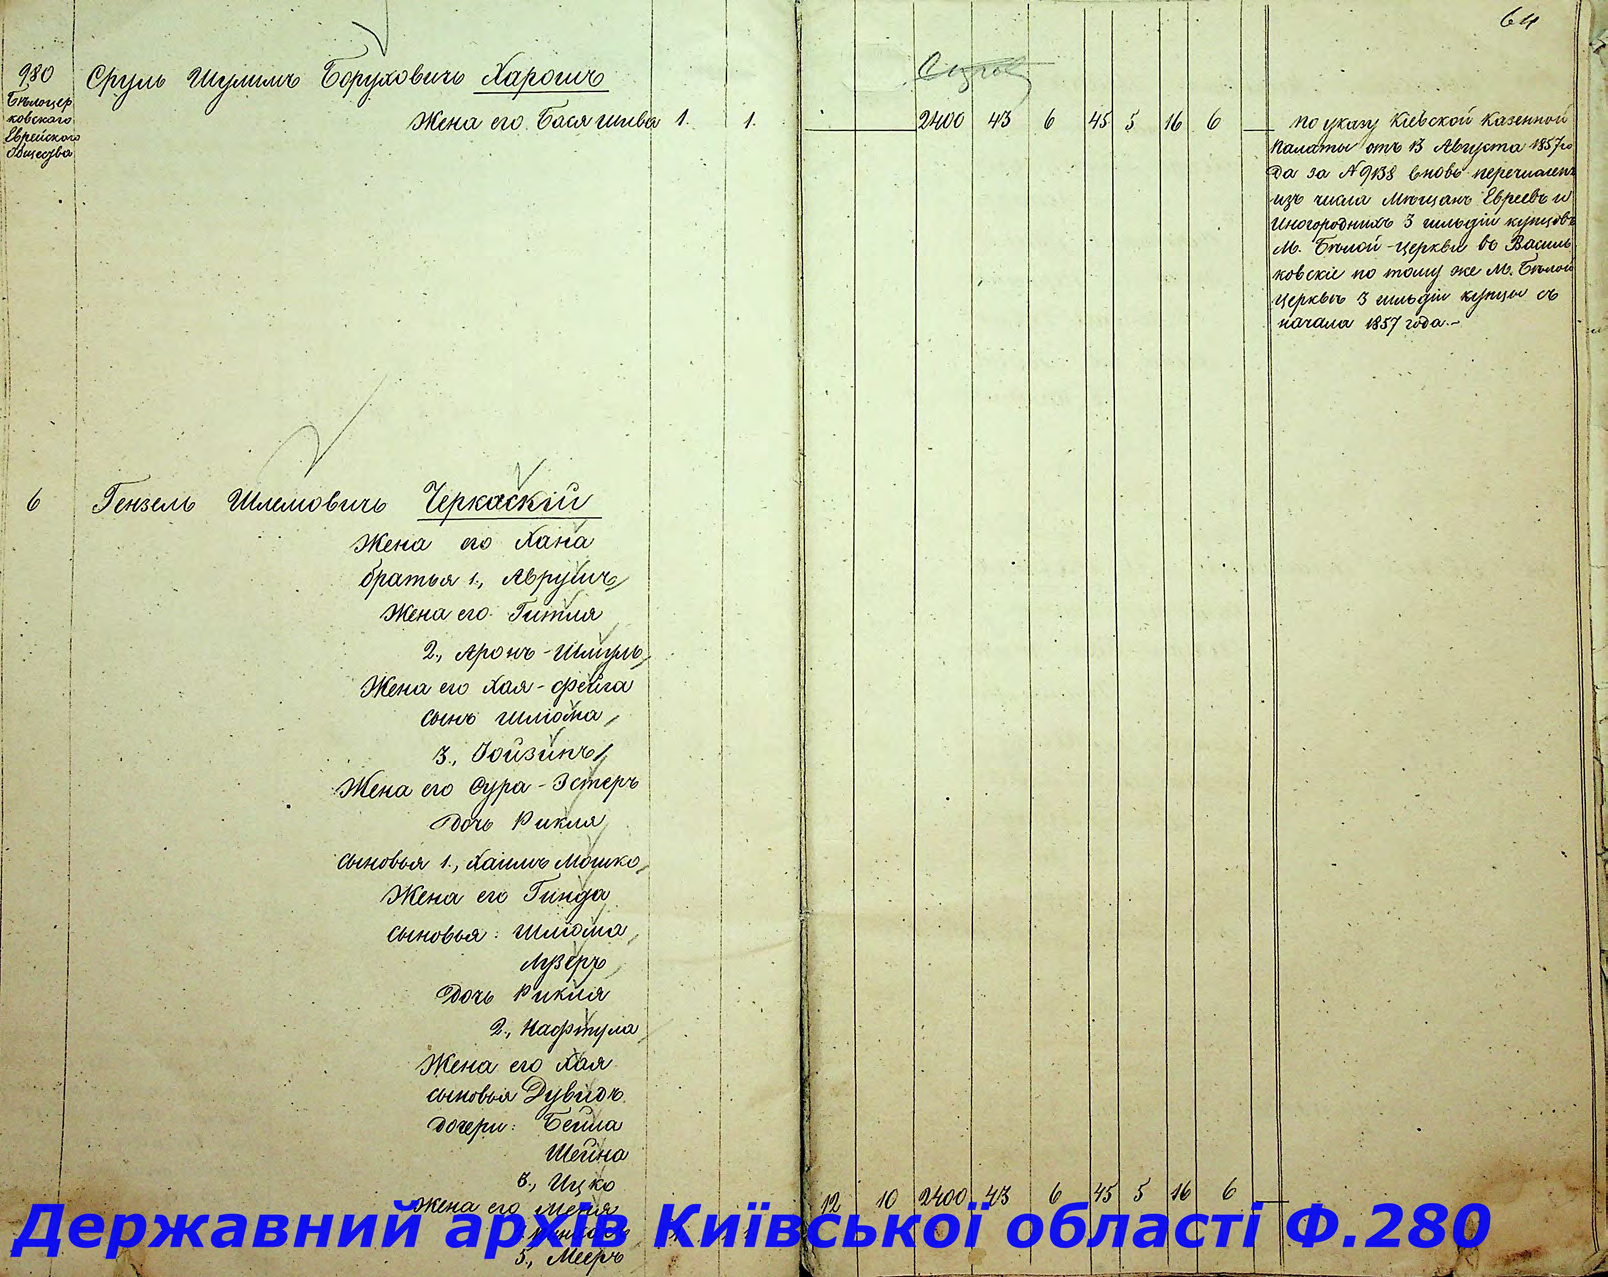 64
980
Бѣлоцер
ковскаго
Еврейского
Общества
Сруль Шулимъ Боруховичъ Харошъ
Жена его Бася Шива 1. 1. 2400 43 6 45 5 16 6
По указу Кіевской Казенной
Палаты отъ 13 Августа 1857 го
да за № 9138 вновь перечислен
изъ числа Мѣщанъ Евреевъ и
Иногороднихъ 3 гильдіи купцовъ
М. Бѣлой-Церкви въ Василь
ковскіе по тому же М. Бѣлой
Церквѣ 3 гильдіи купцы съ
начала 1857 года.-
6 Гензель Шлемовичъ Черкаскій
Жена его Хана
братья 1., Аврумъ
Жена его Гитля
2., Аронъ-Шмуль
Жена его Хая-Фейга
сынъ Шліома
3., Іойзипъ
Жена его Сура-Эстеръ
Дочь Рикля
сыновья 1., Хаимъ Мошко
Жена его Гинда
сыновья: Шліома
Лузеръ
Дочь Рикля
2., Нафтула
Жена его Хая
сыновья Дувидъ
дочери: Бейла
Шейна
3., Ицко
Жена его Меня
12 10 2400 43 6 45 5 16 6
5., Мееръ
Державний архів Київської області Ф.280